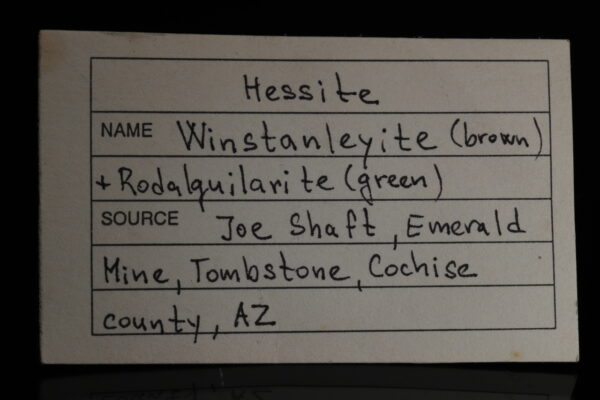 Hessite
NAME Winstanleyite (brown)
+ Rodalquilarite (green)
SOURCE Joe Shaft, Emerald
Mine, Tombstone, Cochise
county, AZ